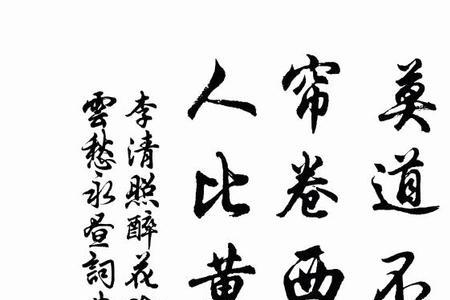 莫道不
帘卷西
人比黄
李清照醉花
雲愁永昼詞